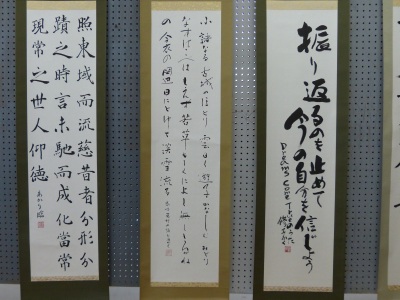 照東域而流慈昔者分形分
蹟之時言未馳而成化當常
現常之世人仰德
小諸なる古城のほとり雲白く遊子かなしむみどり
なすはこべはもえず若草もしくによし無ししろがね
の衾の岡辺日にとけて淡雪流る
振り返るのも止めて
今の自分を信じよう
Dreams Come True